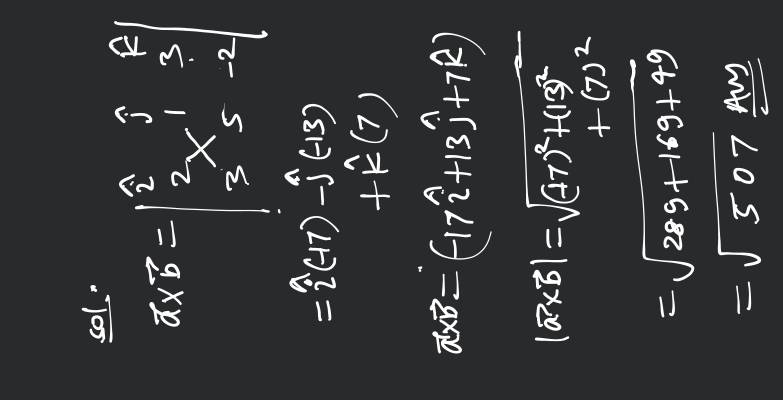 sol.
a⃗×b⃗ = | î ĵ k̂ |
| 2 1 3 |
| 3 5 -2 |
= î(-17) - ĵ(-13)
+ k̂(7)
a⃗×b⃗ = (-17î+13ĵ+7k̂)
|a⃗×b⃗| = √(-17)²+(13)²
+ (7)²
= √289+169+49
= √507 Ans